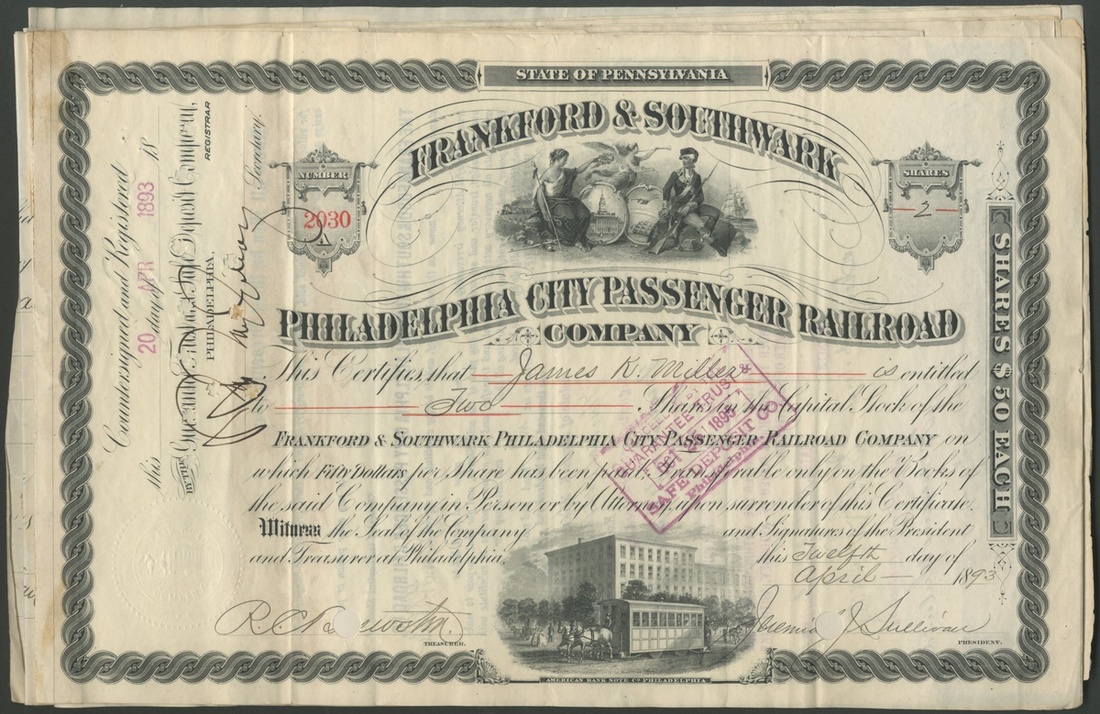 STATE OF PENNSYLVANIA
FRANKFORD & SOUTHWARK
NUMBER
2030
SHARES
2
PHILADELPHIA CITY PASSENGER RAILROAD
COMPANY
This Certifies, that James K. Miller is entitled
to Two Shares in the Capital Stock of the
FRANKFORD & SOUTHWARK PHILADELPHIA CITY PASSENGER RAILROAD COMPANY on
which Fifty Dollars per Share has been paid. Transferable only on the Books of
the said Company in Person or by Attorney, upon surrender of this Certificate.
Witness the Seal of the Company and Signatures of the President
and Treasurer at Philadelphia, this Twelfth day of
April 1893
TREASURER.
Jeremiah J. Sullivan
PRESIDENT.
AMERICAN BANK NOTE CO PHILADELPHIA
SHARES $50 EACH
Countersigned and Registered
this 20 day of APR 1893 18
BY THE Guarantee Trust & Safe Deposit Company,
PHILADELPHIA,
REGISTRAR
Secretary.
GUARANTEE TRUST &
1893
SAFE DEPOSIT CO
Philadelphia